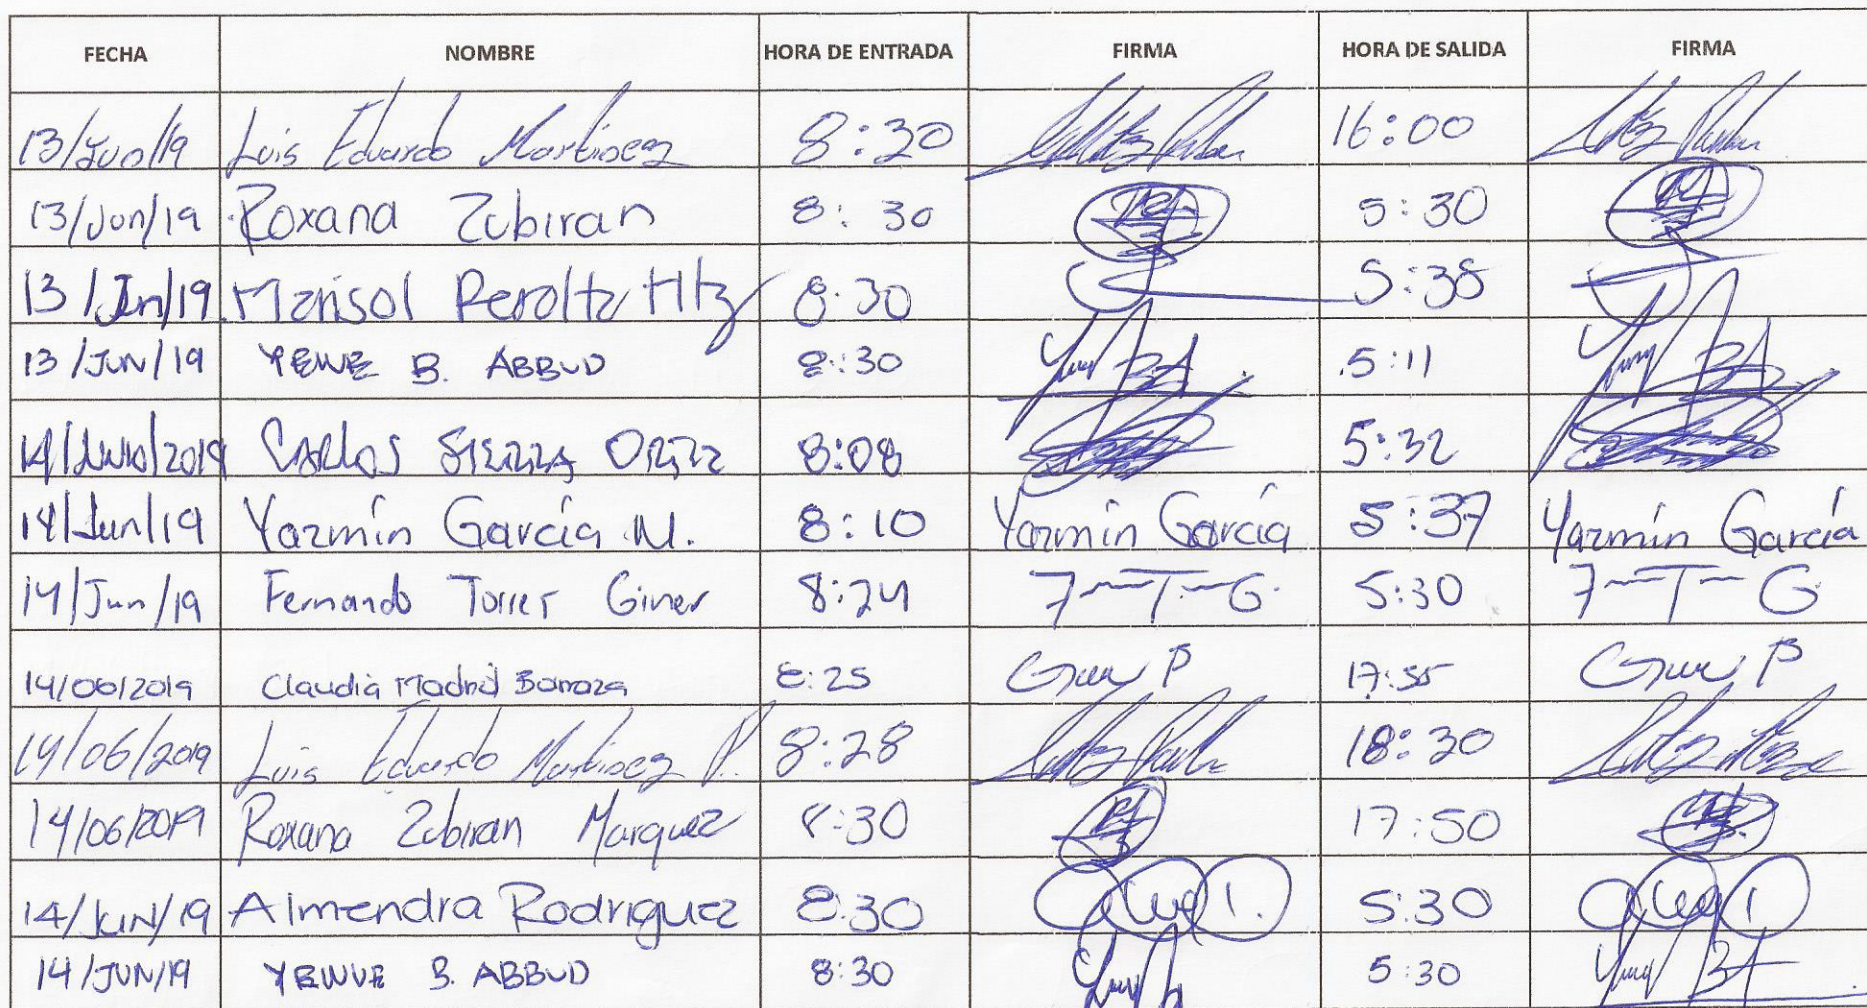 FECHA NOMBRE HORA DE ENTRADA FIRMA HORA DE SALIDA FIRMA
13/Jun/19 Luis Eduardo Martinez 8:30 16:00
13/Jun/19 Roxana Zubiran 8:30 5:30
13/Jun/19 Marisol Peralta Htz 8:30 5:35
13/JUN/19 B. ABBUD 8:30 5:11
14/Junio/2019 Carlos Sierra Ortiz 8:08 5:32
14/Jun/19 Yazmín García M. 8:10 Yazmín García 5:37 Yazmín García
14/Jun/19 Fernando Torres Giner 8:24 F T G. 5:30 F T G
14/06/2019 Claudia Madrid Barraza 8:25 17:55
14/06/2019 Luis Eduardo Martinez P. 8:28 18:30
14/06/2019 Roxana Zubiran Marquez 8:30 17:50
14/JUN/19 Almendra Rodriguez 8:30 5:30
14/JUN/19 B. ABBUD 8:30 5:30